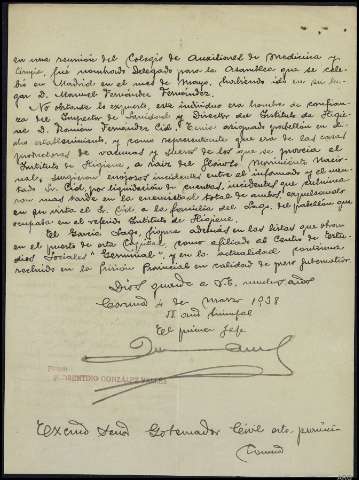 en una reunión del Colegio de Auxiliares de Medicina y
Cirugía, fué nombrado Delegado para la Asamblea que se cele-
bró en Madrid en el mes de Mayo, habiendo ido en su lu-
gar D. Manuel Fernández Fernández.
No obstante lo expuesto, este individuo era hombre de confian-
za del Inspector de Sanidad y Director del Instituto de Higie-
ne D. Ramon Fernandez Cid. Tenia asignado pabellón en di-
cho establecimiento, y como representante que era de las casas
productoras de vacunas y sueros de los que se proveia el
Instituto de Higiene, a raiz del Glorioso Movimiento Nacio-
nal, surgieron enojosos incidentes entre el informado y el men-
tado Sr. Cid, por liquidación de cuentas, incidentes que culmina-
ron mas tarde en la enemistad total de ambos, expulsando
en su virtud el Sr. Cid, a la familia del Lago, del pabellón que
ocupaba en el referido Instituto de Higiene.
El García Lago, figura además en las listas que obran
en el puesto de esta Capital, como afiliado al Centro de Estu-
dios Sociales "Germinal", y en la actualidad continua
recluido en la Prisión Provincial en calidad de preso gubernativo.
Dios guarde a V.E. muchos años
Coruña 4 de Marzo 1938
II año triunfal
El primer Jefe
FLORENTINO GONZALEZ VALLES
Excmo Señor Gobernador Civil esta provincia
Coruña